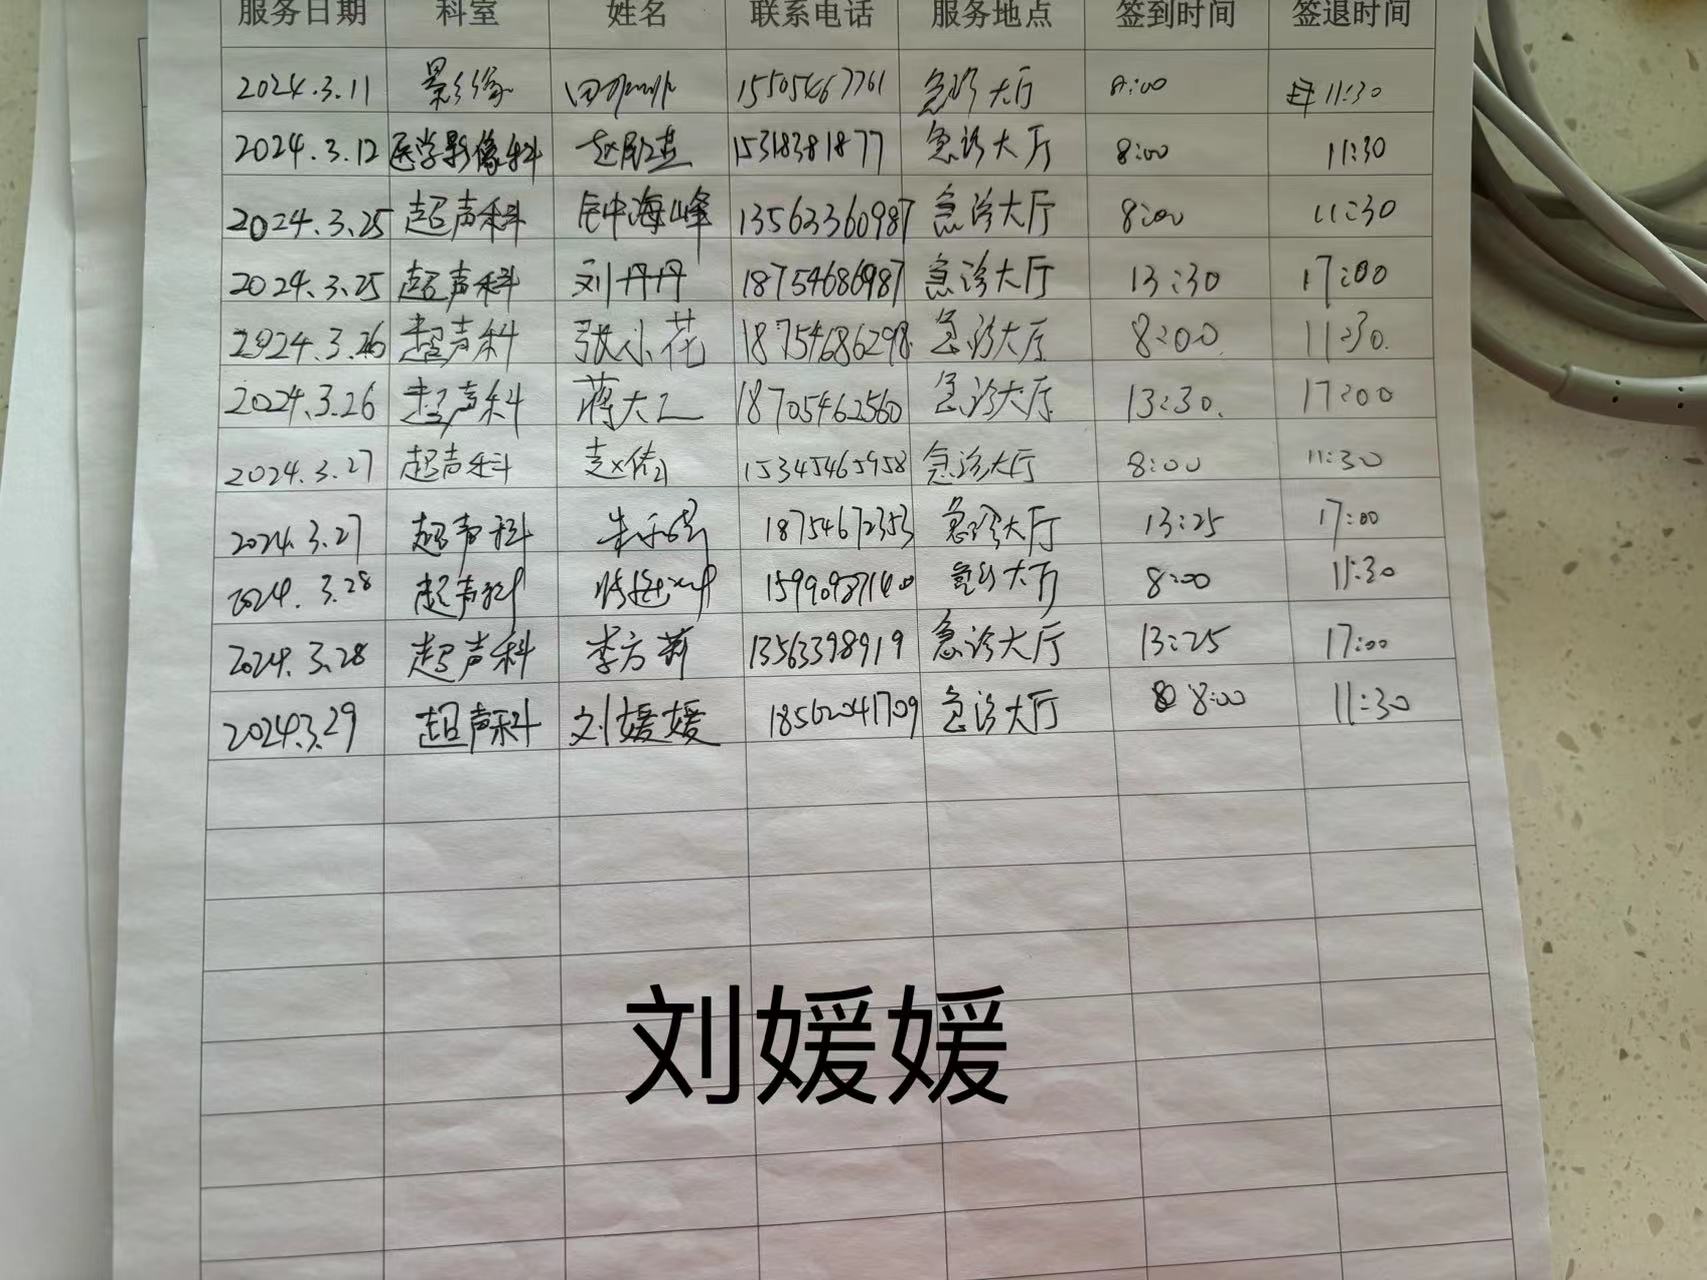 服务日期 科室 姓名 联系电话 服务地点 签到时间 签退时间
2024.3.11 影像 15505467761 急诊大厅 8:00 11:30
2024.3.12 医学影像科 15318381877 急诊大厅 8:00 11:30
2024.3.25 超声科 海峰 13563360987 急诊大厅 8:00 11:30
2024.3.25 超声科 刘丹丹 18754686987 急诊大厅 13:30 17:00
2024.3.26 超声科 张小花 18754686298 急诊大厅 8:00 11:30
2024.3.26 超声科 蒋大 18705462560 急诊大厅 13:30 17:00
2024.3.27 超声科 15345465958 急诊大厅 8:00 11:30
2024.3.27 超声科 18754672353 急诊大厅 13:25 17:00
2024.3.28 超声科 急诊大厅 8:00 11:30
2024.3.28 超声科 李方莉 13563398919 急诊大厅 13:25 17:00
2024.3.29 超声科 刘媛媛 18562041709 急诊大厅 8:00 11:30
刘媛媛